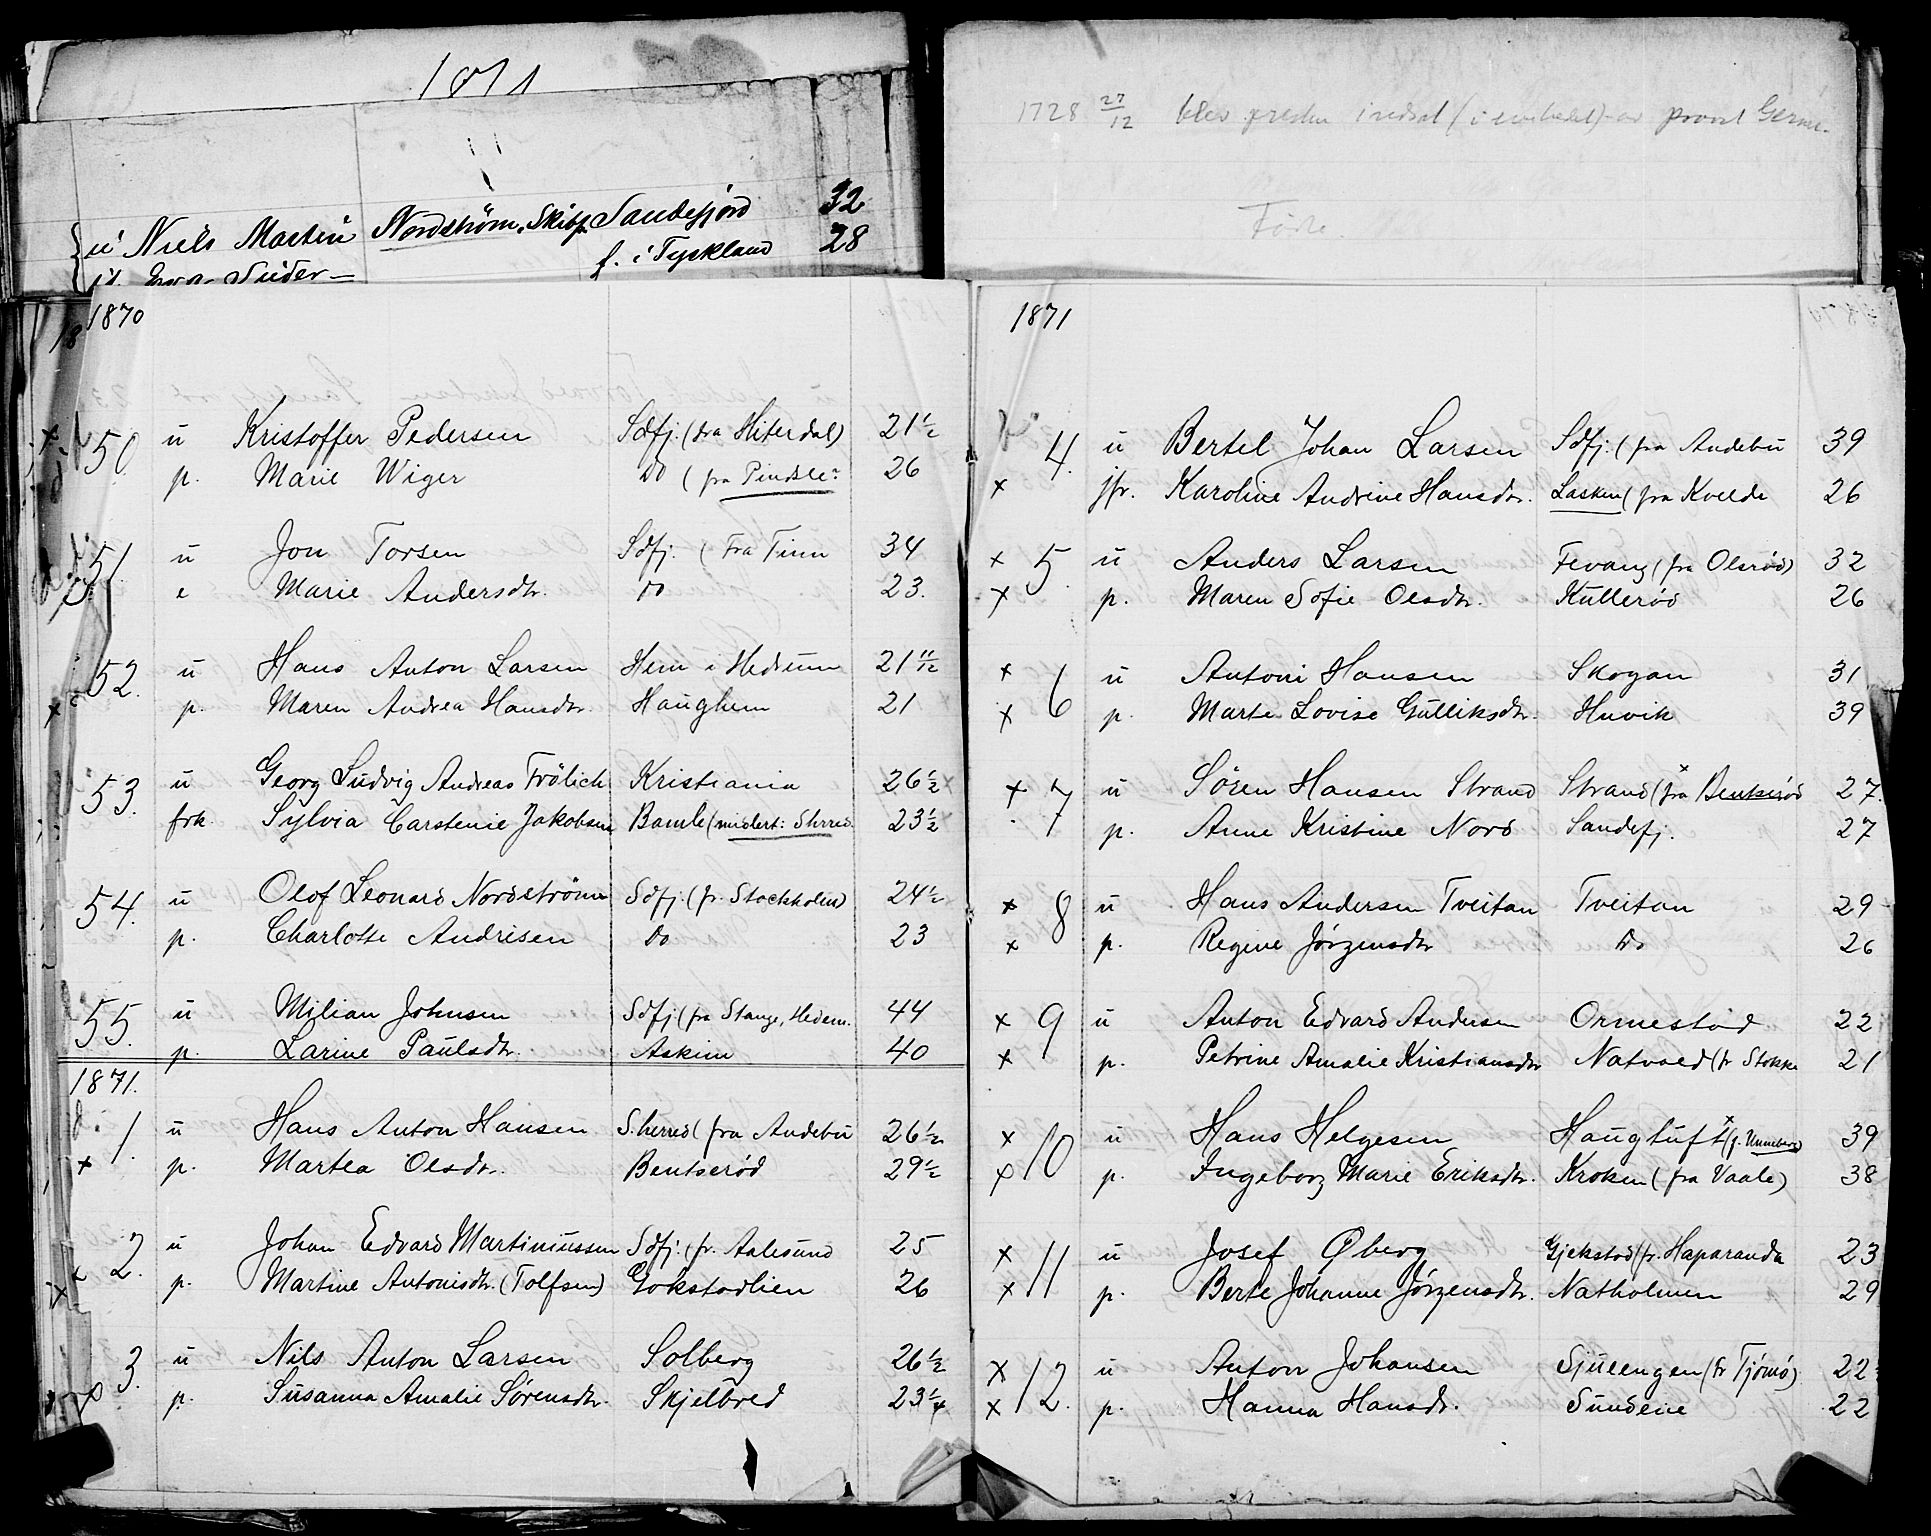 1871
u Niels Martin Nordstrøm. Skibsf. Sandefjord 32
f. i Tyskland 28
1870
50. u Kristoffer Pedersen Sdfj. (fra Hiterdal) 21 1/2
p. Marie Wiger Do (fra Pindsle 26
51. u Jon Torsen Sdfj. (Fra Tinn 34
e Marie Andersdtr. Do 23.
52. u Hans Anton Larsen Hem i Hedrum 21 11/12
x p. Maren Andrea Hansdtr. Haughem 21
53. u Georg Ludvig Andreas Frölich Kristiania 26 1/2
frk. Sylvia Carstenie Jakobsen Bamle (midlert: Sherred. 23 1/2
54. u Olof Leonard Nordström Sdfj. (fr. Stockholm) 24 1/2
p. Charlotte Andrisen Do 23
55. u Milian Johnsen Sdfj. (fra Stange, Hedem. 44
p. Larine Paulsdtr. Askim 40
1871.
1. u Hans Anton Hansen S.herred (fra Andebu 26 1/2
x p. Martea Olsdtr. Bentserød 29 1/2
2. u Johan Edvard Martiniussen Sdfj. (fr. Aalesund 25
x p. Martine Antonisdtr. (Tolfsen) Gokstadlien 26
3. u Nils Anton Larsen Solberg 26 1/2
x p. Susanna Amalie Sörensdtr. Skjelbred 23 1/4
1728 27/12 blev
provst
Födte.
1871
4. u Bertel Johan Larsen Sdfj. (fra Andebu 39
x jfr. Karoline Andrine Hansdtr. Lasken (fra Kvelde 26
x 5. u Anders Larsen Fevang (fra Olsrød) 32
x p. Maren Sofie Olsdtr. Kullerød 26
x 6 u Antoni Hansen Skogan 31
x p. Marte Lovise Gulliksdtr. Huvik 39
x 7 u Sören Hansen Strand Strand (fra x Bentserød 27.
p. Anne Kristine Nord Sandefj. 27
x 8 u Hans Andersen Tveitan Tveitan 29
x p. Regine Jörgensdtr Do 26
x 9 u Anton Edvard Andersen Ormestad 22
x p. Petrine Amalie Kristiansdtr Natvald (fr Stokke 21
x 10 u Hans Helgesen Haugtuft x 39
x p. Ingeborg Marie Eriksdtr. Kroken (fra Vaale) 38
x 11 u Josef Øberg Gjekstad (fr. Haparanda 23
x p. Berte Johanne Jörgensdtr. Natholmen 29
x 12. u Anton Johansen Sjulengen (fr Tjömö) 22
x p. Hanna Hansdtr. Sundene 22